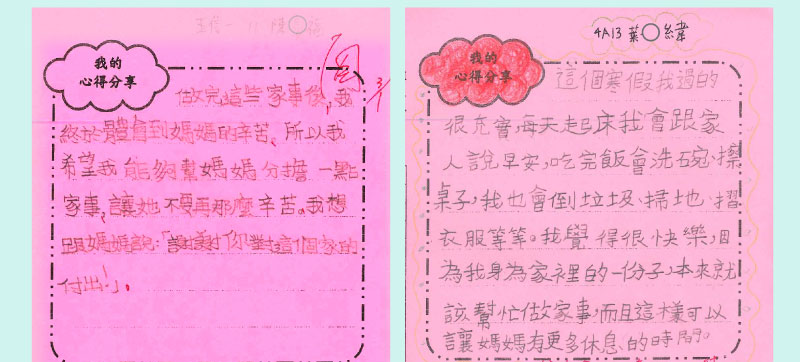 我的
心得分享
做完這些家事後,我
終於體會到媽媽的辛苦。所以我
希望我能夠幫媽媽分擔一點
家事,讓她不要再那麼辛苦。我想
跟媽媽說:「謝謝你對這個家的
付出!」。
4A13 葉○緯
我的
心得分享
這個寒假我過的
很充實,每天起床我會跟家
人說早安,吃完飯會洗碗、擦
桌子,我也會倒垃圾、掃地、摺
衣服等等。我覺得很快樂,因
為我身為家裡的一份子,本來就
該幫忙做家事,而且這樣可以
讓媽媽有更多休息的時間。